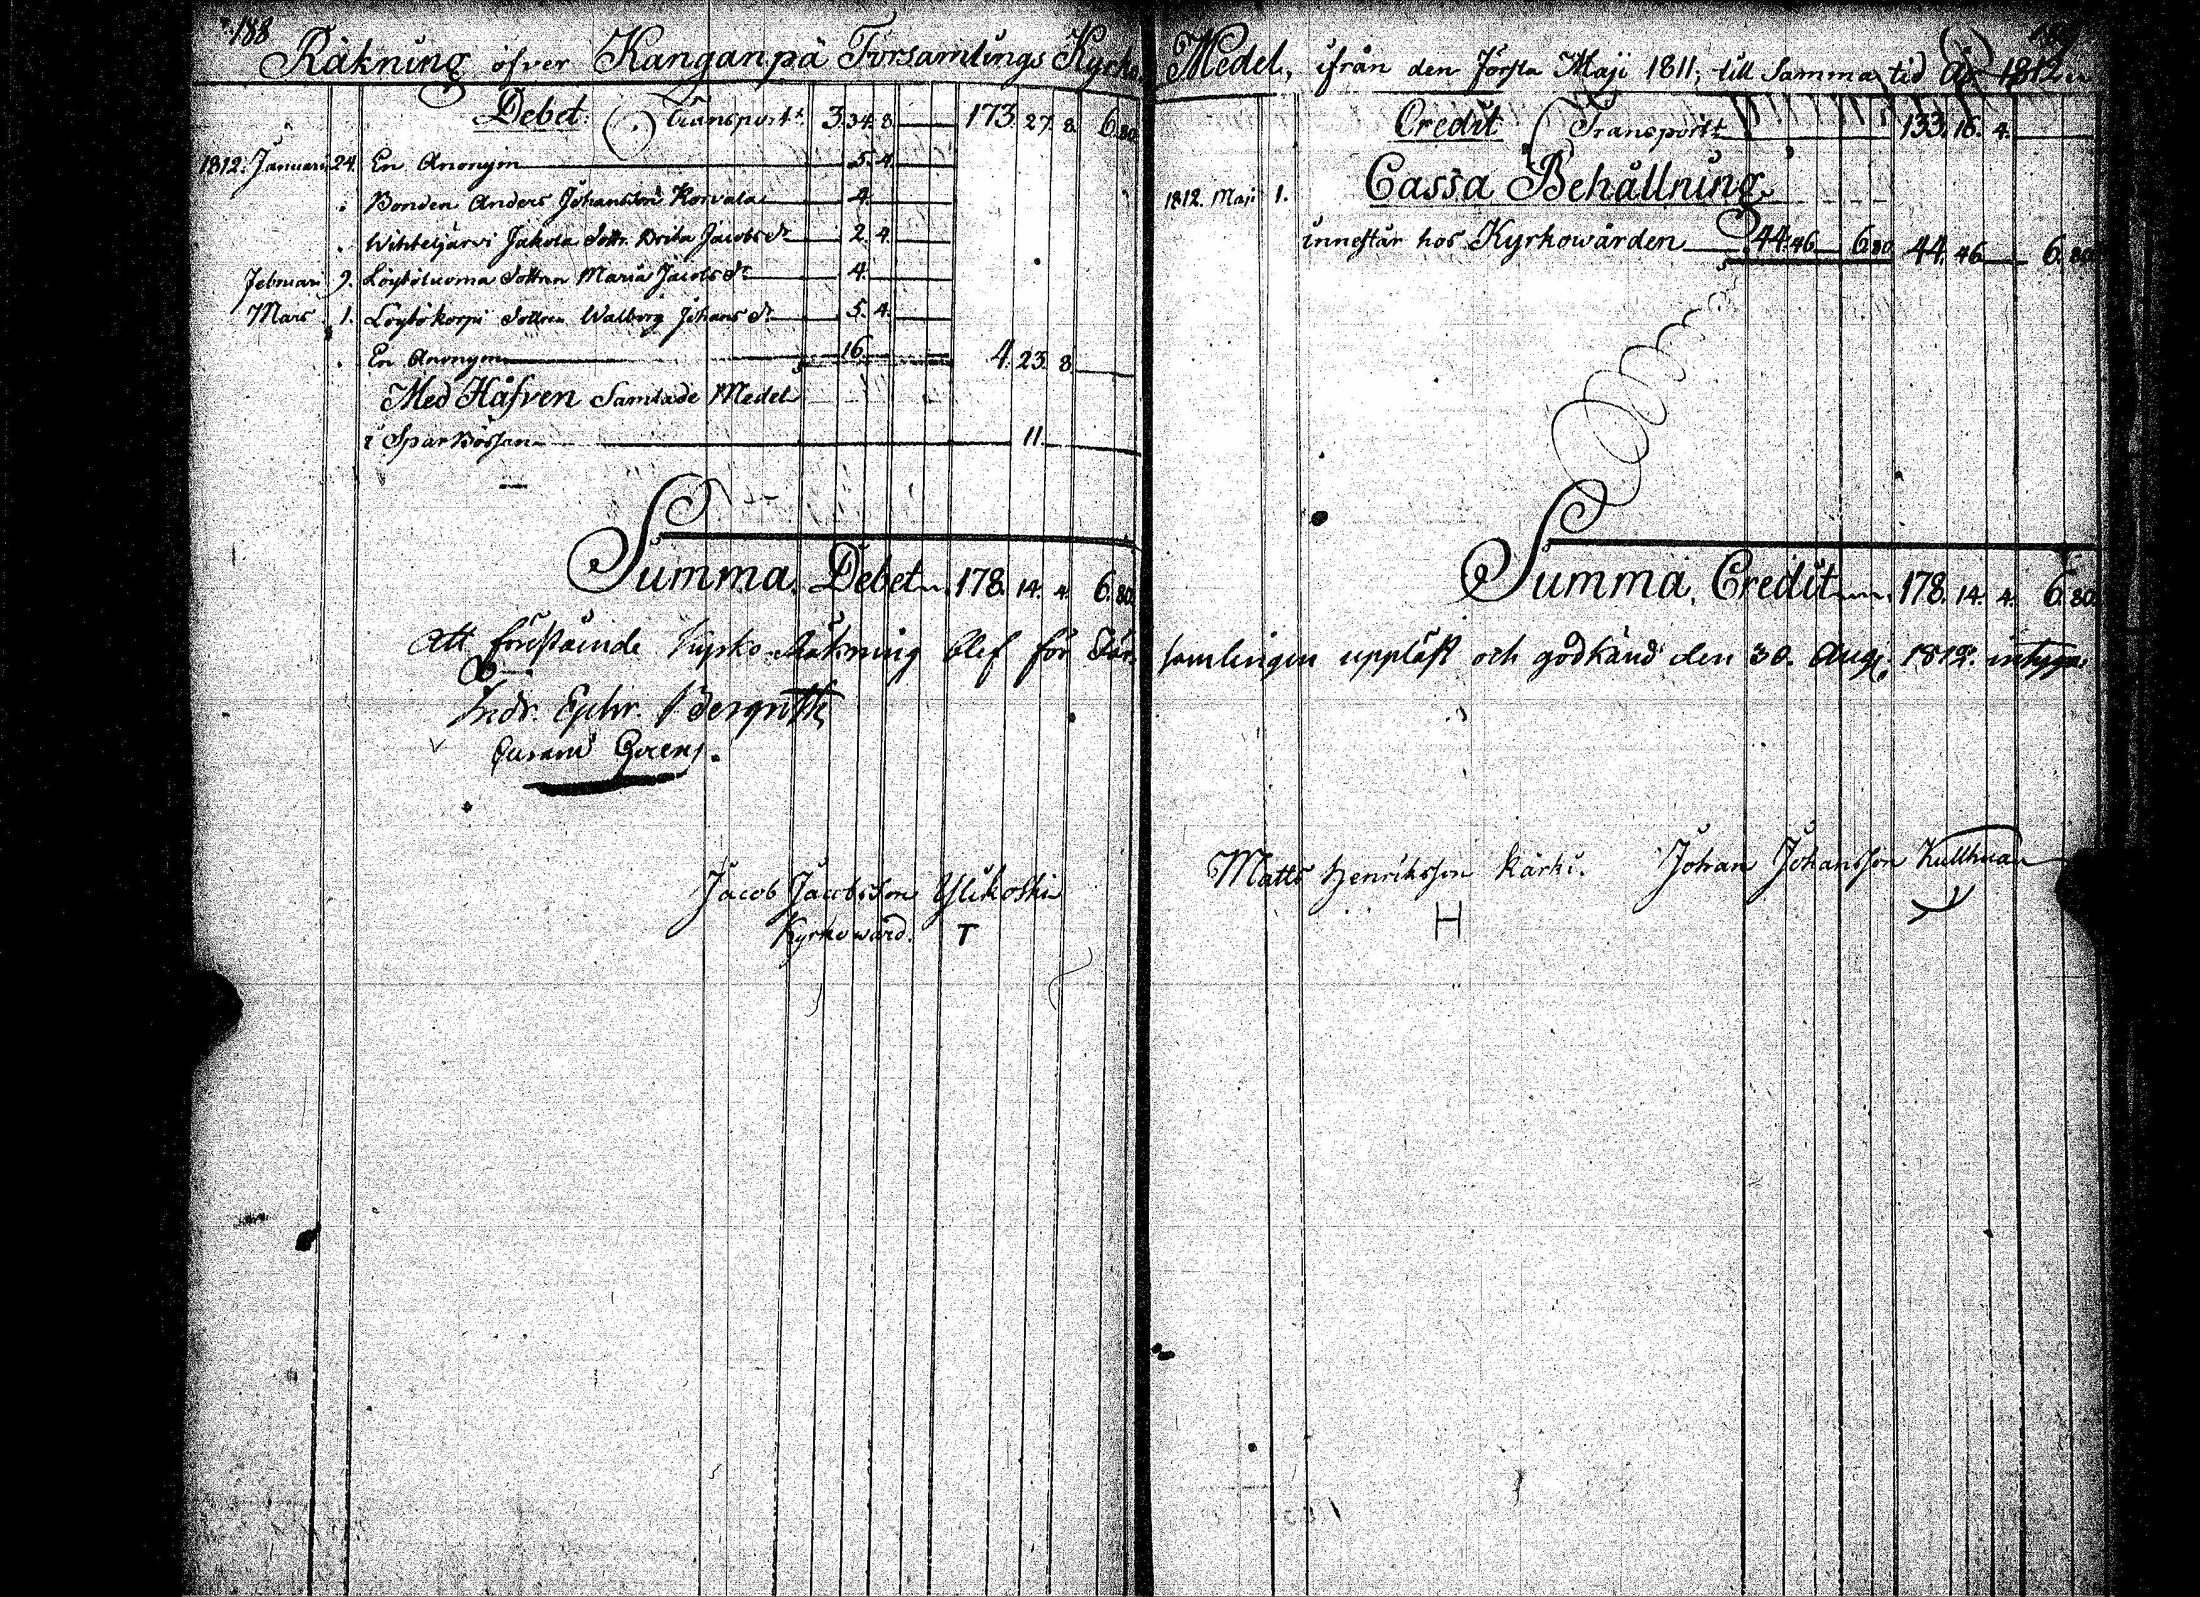 188
Räkning öfver Kanganpä Församlings Kyrko
Debet. Transport 3. 34. 8 173. 27. 8. 6. 80.
1812. Januari 24. En Anonym 5. 4.
Bonden Anders Johansson Korvala 4.
Wihteljärvi Jakola Dottr. Brita Jacobsdr 2. 4.
Februari 9. Löytöluoma Dottren Maria Jacobsdr 4.
Mars 1. Löytökorpi Dottren Walborg Johansdr 5. 4.
En Anonym 16. 4. 23. 8
Med Håfven Samlade Medel
i Sparbössan 11
Summa Debet 178. 14. 4. 6. 80.
Att förestående Kyrko Räkning blef för För-
Jacob Jacobsson Ylikoski
Kyrkowärd. T
189
Medel, ifrån den Första Maji 1811, till Samma tid År 1812
Credit Transport 133. 16. 4.
Cassa Behållning
1812. Maji 1.
innestår hos Kyrkowärden 44. 46 6. 80 44. 46 6. 80
Summa Credit 178. 14. 4. 6. 80.
samlingen uppläst och godkänd den 30. Aug. 1812. intyga
Matts Henriksson Kärki. Johan Johansson Kullhua
H